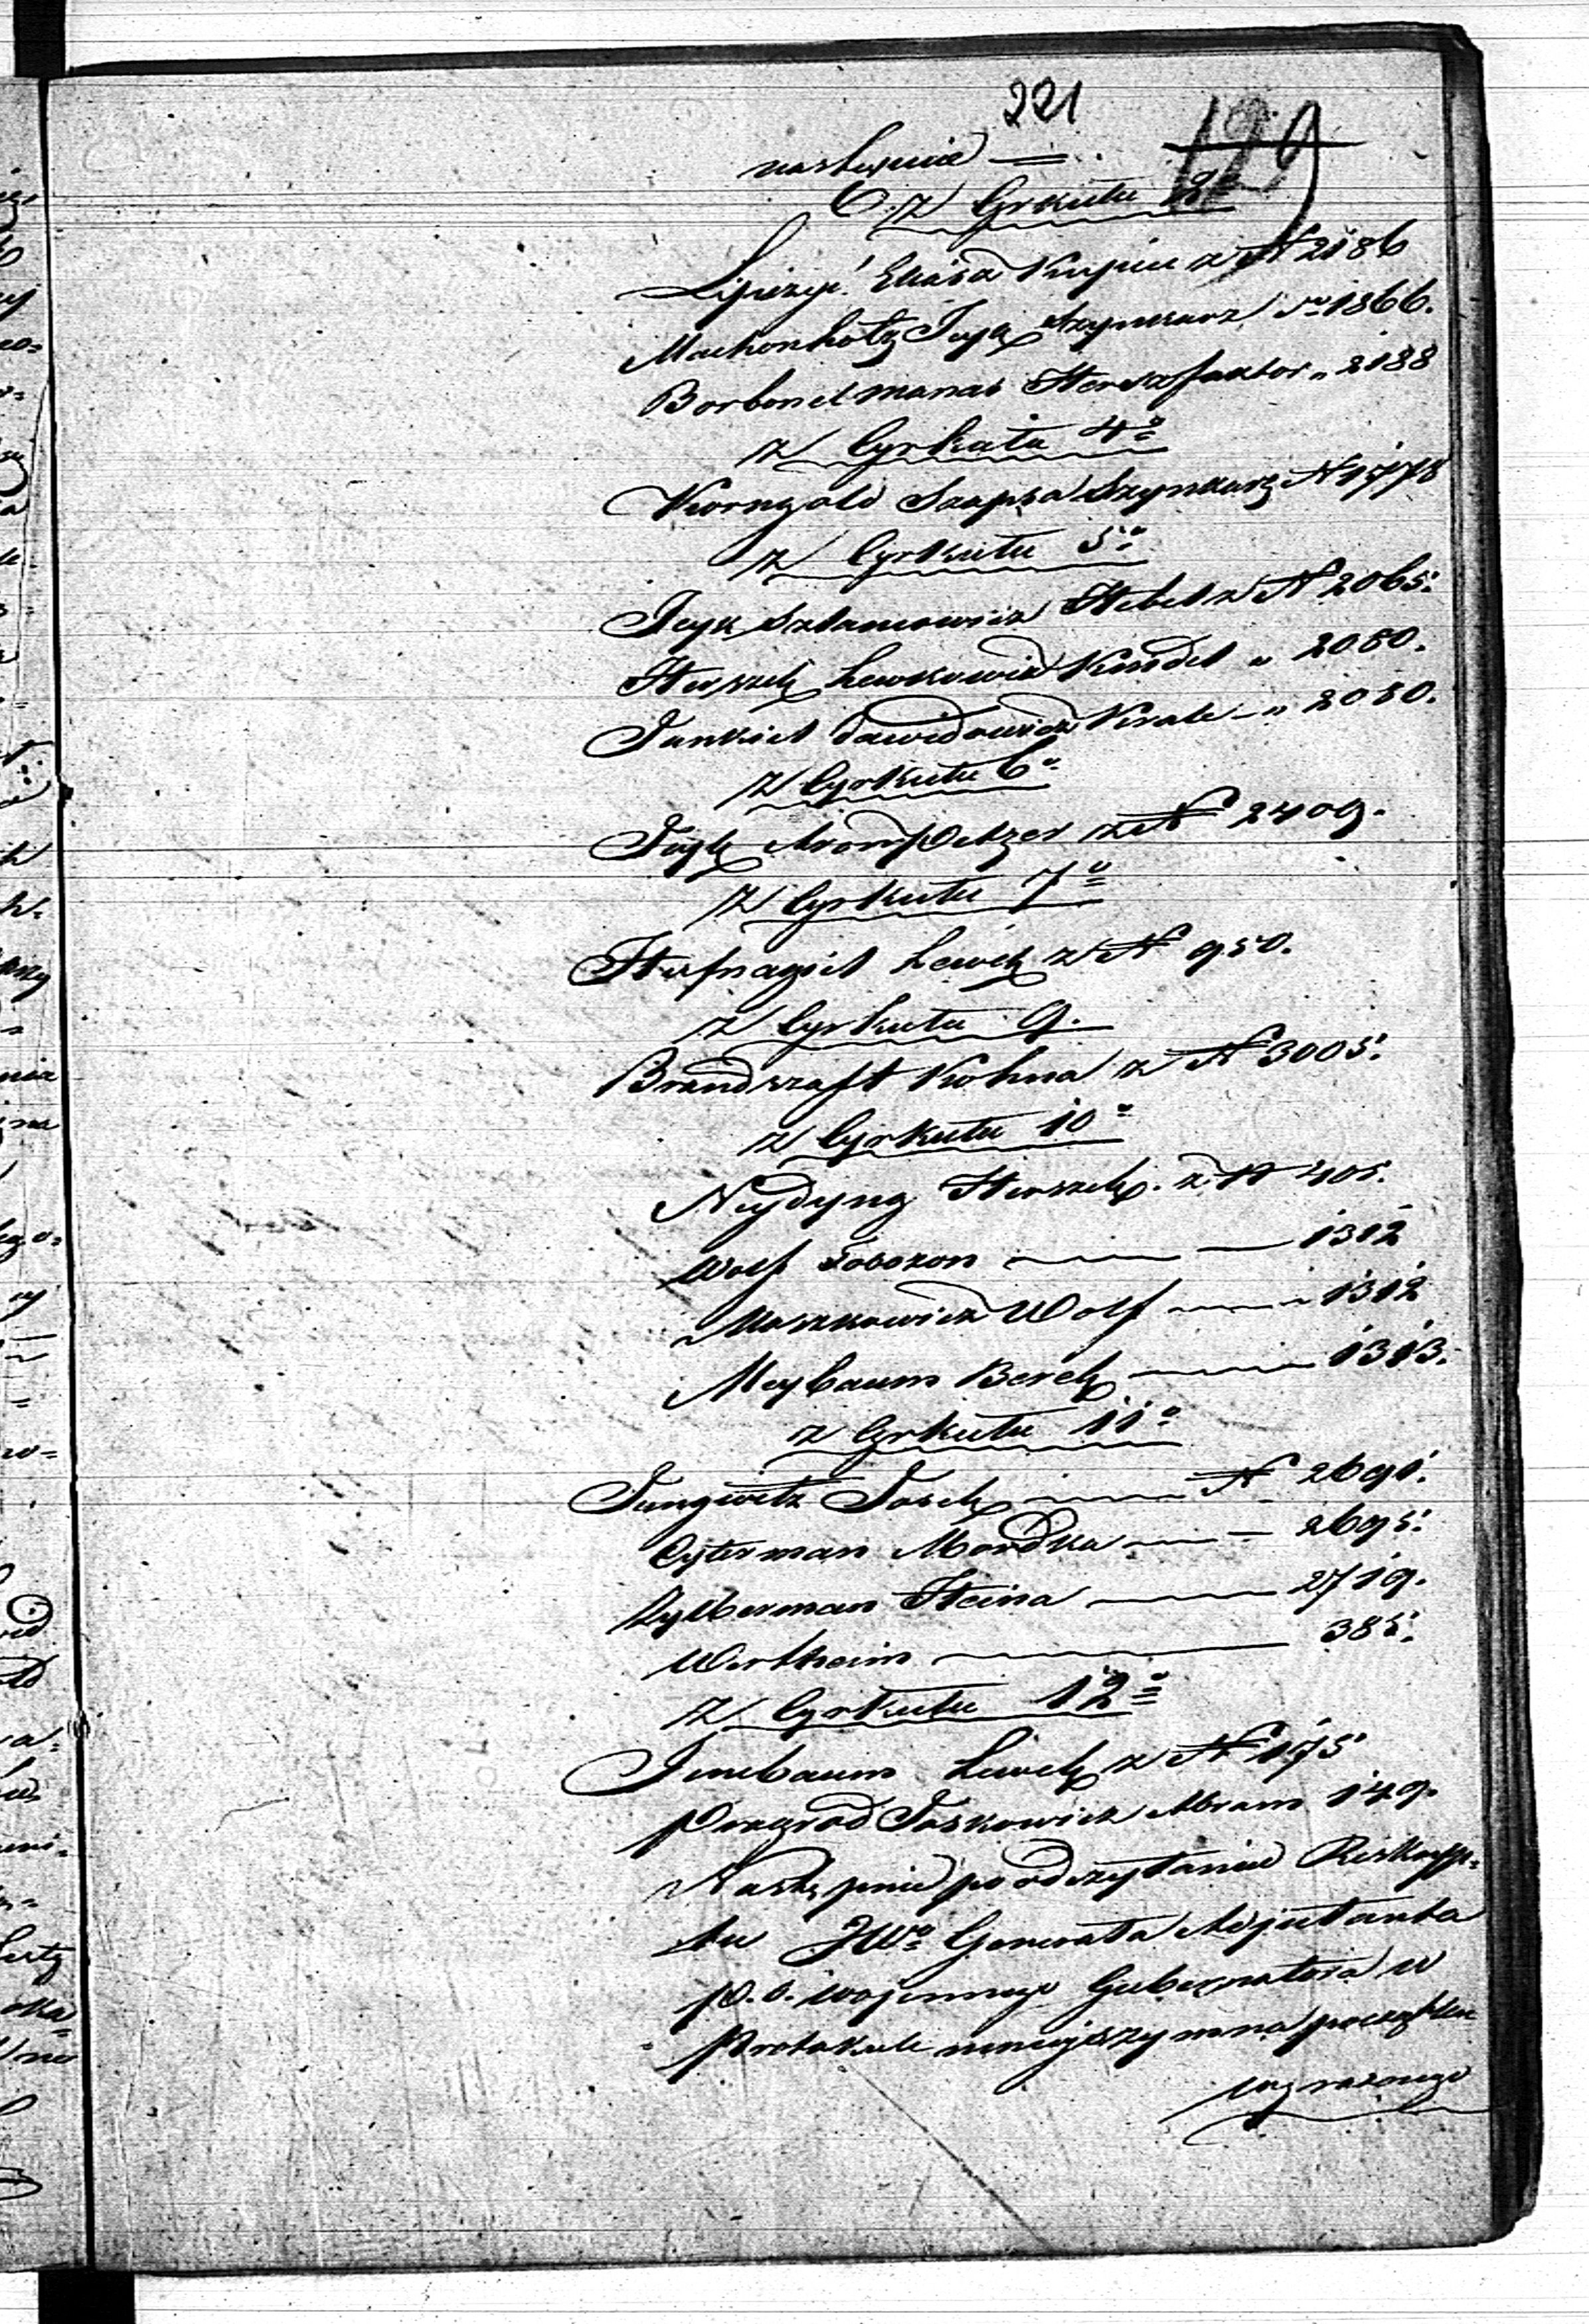 221
129
następnie =
6. z Cyrkułu 2º
Lipszyc Eliasz Kupiec z N 2186
Machonholtz Icyk Szynkarz N 1866.
Borbonel manas Hersz faktor „ 2188
z Cyrkułu 4º
Korngold Szapsa Szynkarz N 1778
z Cyrkułu 5º
Icyk Szlamowicz Hebel z N 2065.
Herszek Lewkowicz Kundel „ 2050.
Jankiel Dawidowicz Krale — „ 2050.
z Cyrkułu 6º
Icyk z N 2409.
z Cyrkułu 7º
Hufnagiel Lewek z N 950.
z Cyrkułu 9.
Brandszaft Kohna z N 3005.
z Cyrkułu 10º
Neydyng Herszek. z N 405.
Wolf — 1312
Moszkowicz Wolf — 1312
Meybaum Berek — 1313.
z Cyrkułu 11º
Jungwitz Josek — N 2691.
Cyterman Mordka — 2695.
Zylberman Heina — 2719.
Wertheim — 385.
z Cyrkułu 12º
Lewek z N 175
Pragrod Joskowicz Abram 149.
Następnie po odczytaniu Reskryp-
tu JWº Generała Adjutanta
p. o. wojennego Gubernatora w
Protokule niniejszym na początku
wyrażonego